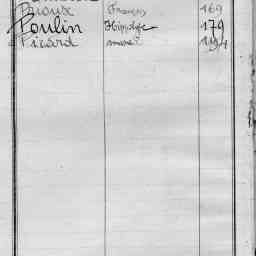 Prioux François 169
Poulin Hippolyte 179
Picard 194